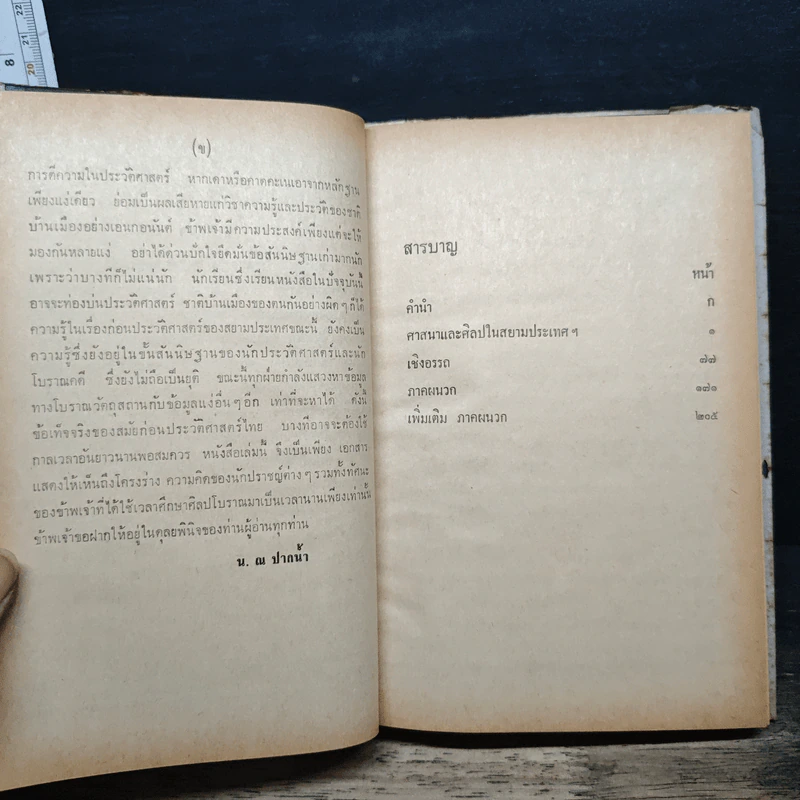 8
22
21
20
(ข)
การตีความในประวัติศาสตร์ หากเดาหรือคาดคะเนเอาจากหลักฐาน
เพียงแง่เดียว ย่อมเป็นผลเสียหายแก่วิชาความรู้และประวัติของชาติ
บ้านเมืองอย่างเอนกอนันต์ ข้าพเจ้ามีความประสงค์เพียงแต่จะให้
มองกันหลายแง่ อย่าได้ด่วนปักใจยึดมั่นข้อสันนิษฐานเก่ามากนัก
เพราะว่าบางทีก็ไม่แน่นัก นักเรียนซึ่งเรียนหนังสือในปัจจุบันนี้
อาจจะท่องบ่นประวัติศาสตร์ ชาติบ้านเมืองของตนกันอย่างผิดๆก็ได้
ความรู้ในเรื่องก่อนประวัติศาสตร์ของสยามประเทศขณะนี้ ยังคงเป็น
ความรู้ซึ่งยังอยู่ในขั้นสันนิษฐานของนักประวัติศาสตร์และนัก
โบราณคดี ซึ่งยังไม่ถือเป็นยุติ ขณะนี้ทุกฝ่ายกำลังแสวงหาข้อมูล
ทางโบราณวัตถุสถานกับข้อมูลแง่อื่นๆอีก เท่าที่จะหาได้ ดังนี้
ข้อเท็จจริงของสมัยก่อนประวัติศาสตร์ไทย บางทีอาจจะต้องใช้
กาลเวลาอันยาวนานพอสมควร หนังสือเล่มนี้ จึงเป็นเพียง เอกสาร
แสดงให้เห็นถึงโครงร่าง ความคิดของนักปราชญ์ต่างๆรวมทั้งทัศนะ
ของข้าพเจ้าที่ได้ใช้เวลาศึกษาศิลปโบราณมาเป็นเวลานานเพียงเท่านั้น
ข้าพเจ้าขอฝากให้อยู่ในดุลยพินิจของท่านผู้อ่านทุกท่าน
น. ณ ปากน้ำ
สารบาญ
หน้า
คำนำ ก
ศาสนาและศิลปในสยามประเทศ ฯ ๑
เชิงอรรถ ๗๗
ภาคผนวก ๑๗๑
เพิ่มเติม ภาคผนวก ๒๐๕